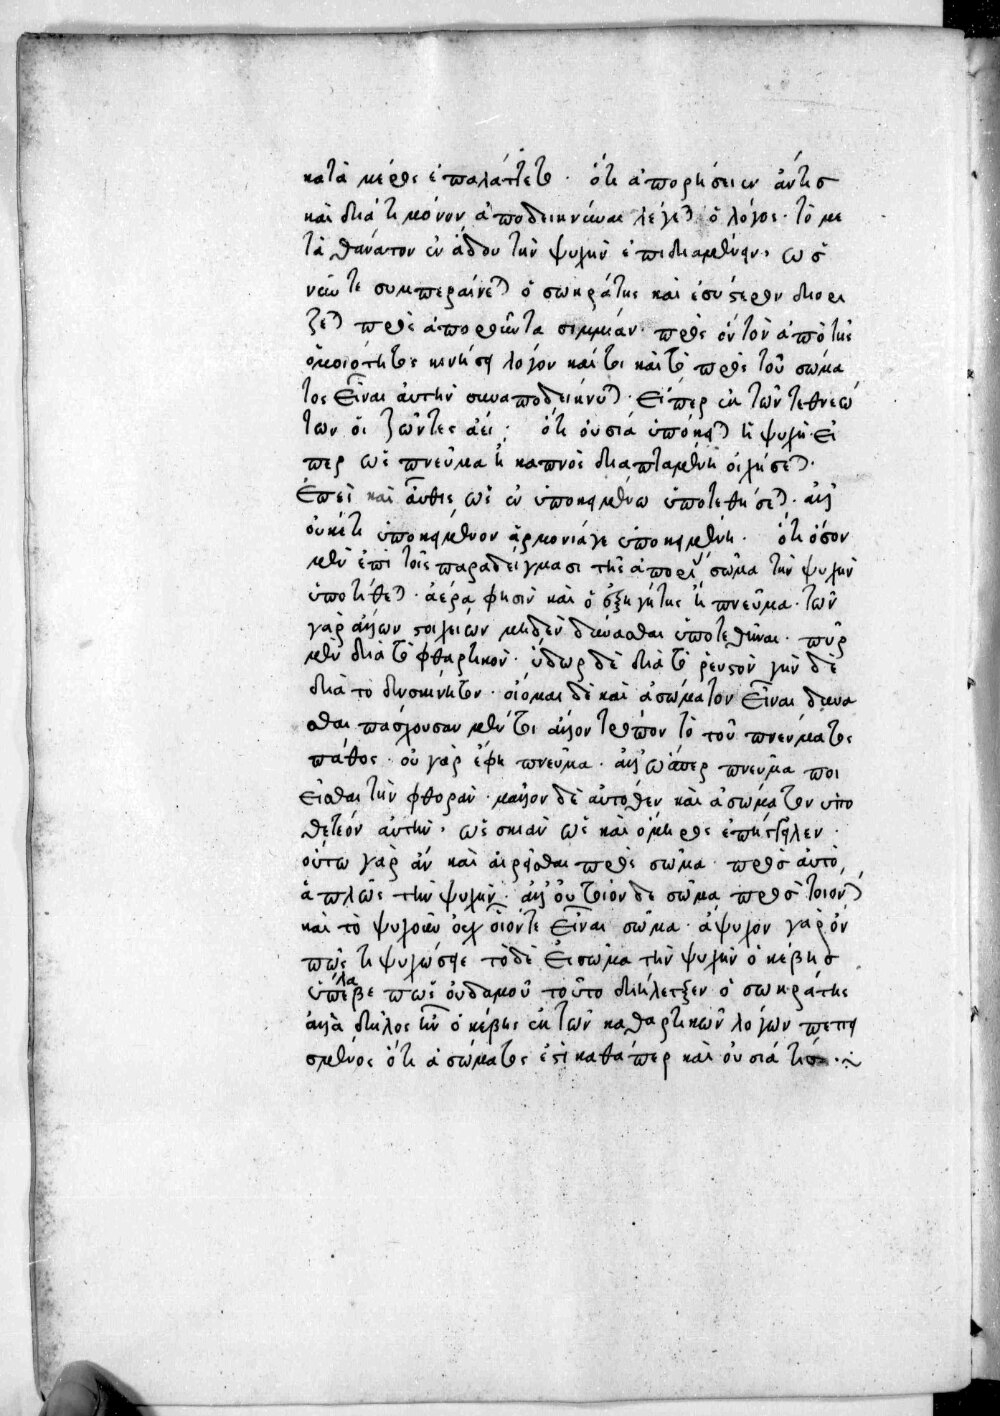 κατὰ μέρος ἐπαλάττετο · ὅτι ἀπορήσειεν ἄν τις
καὶ διά τι μόνον ἀποδεικνύναι λέγεται ὁ λόγος · τὸ με
τὰ θάνατον ἐν ἅδου τὴν ψυχὴν ἐπιδιαμένειν, ὡς
συμπεραίνεται ὁ σωκράτης καὶ ἐσύστερον διορι
ζεται πρὸς ἀποροῦντα σιμμίαν · πρὸς ὃν τὸν ἀπὸ τῆς
ὁμοιότητος κινήσει λόγον καίτοι καὶ τὸ πρὸς τοῦ σώμα
τος εἶναι αὐτὴν συναποδείκνυται · εἴπερ ἐκ τῶν τεθνεώ
των οἱ ζῶντες ἀεί : ὅτι οὐσία ὑπόκειται ἡ ψυχή · εἴ
περ ὡς πνεῦμα ἢ καπνὸς διαπταμένη οἰχήσεται ·
ἐπεὶ καὶ αὖθις ὡς ἐν ὑποκειμένω ὑποτεθήσεται · ἀλλ
οὐκέτι ὑποκείμενον ἁρμονία γε ὑποκειμένη · ὅτι ὅσον
μὲν ἐπὶ τοῖς παραδείγμασι τῆς ἀπορί σῶμα τὴν ψυχὴν
ὑποτίθεται · ἀέρα φησὶν καὶ ὁ ἐξηγητὴς ἢ πνεῦμα · τῶν
γὰρ ἄλλων στοιχείων μηδὲν δύνασθαι ὑποτεθῆναι · πῦρ
μὲν διὰ τὸ φθαρτικὸν · ὕδωρ δὲ διὰ τὸ ῥευστὸν γῆν δὲ
διὰ το δυσκίνητον · οἶομαι δὲ καὶ ἀσώματον εἶναι δύνα
σθαι πάσχουσαν μέντοι ἄλλον τρόπον τὸ τοῦ πνεύματος
πάθος · οὐ γὰρ ἔφη πνεῦμα · ἀλλ ὥσπερ πνεῦμα ποι
εῖσθαι τὴν φθοράν · μᾶλλον δὲ αὐτόθεν καὶ ἀσώματον ὑπο
θετέον αὐτὴν, ὡς σκιὰν ὡς καὶ ὅμηρος ἐπήγγειλεν ·
οὕτω γὰρ ἂν καὶ αἱρεῖσθαι πρὸς σῶμα · πρὸς αὐτὸ,
ἁπλῶς τὴν ψυχὴν · ἀλλ οὐ τοιόνδε σῶμα πρὸς τοιόν
καὶ τὸ ψυχοῦν οὐχ οἷόντε εἶναι σῶμα · ἄψυχον γὰρ ὂν
πῶς τι ψυχώσειε τὸ δὲ εἰ σῶμα τὴν ψυχὴν ὁ κέβης
ὑπέλαβε πως οὐδαμοῦ τοῦτο διήλεγξεν ὁ σωκράτης
ἀλλὰ δῆλος ἦν ὁ κέβης ἐκ τῶν καθαρτικῶν λόγων πεπει
σμένος ὅτι ἀσώματος ἐστὶ καθάπερ καὶ οὐσία τίς ·